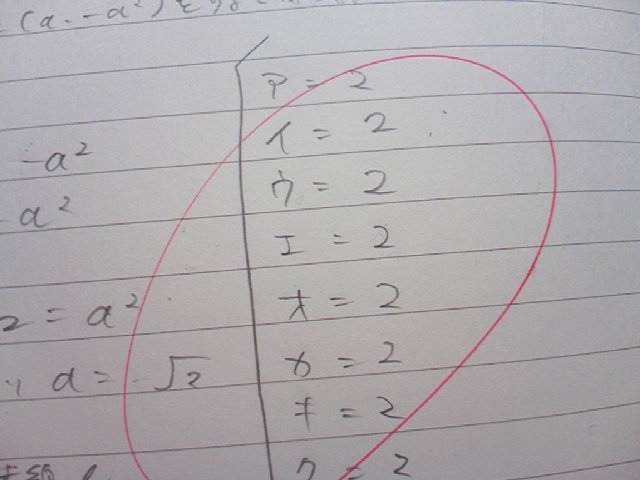 (a, -a²)
-a²
a²
2 = a²
a = √2
ア = 2
イ = 2
ウ = 2
エ = 2
オ = 2
カ = 2
キ = 2
ク = 2